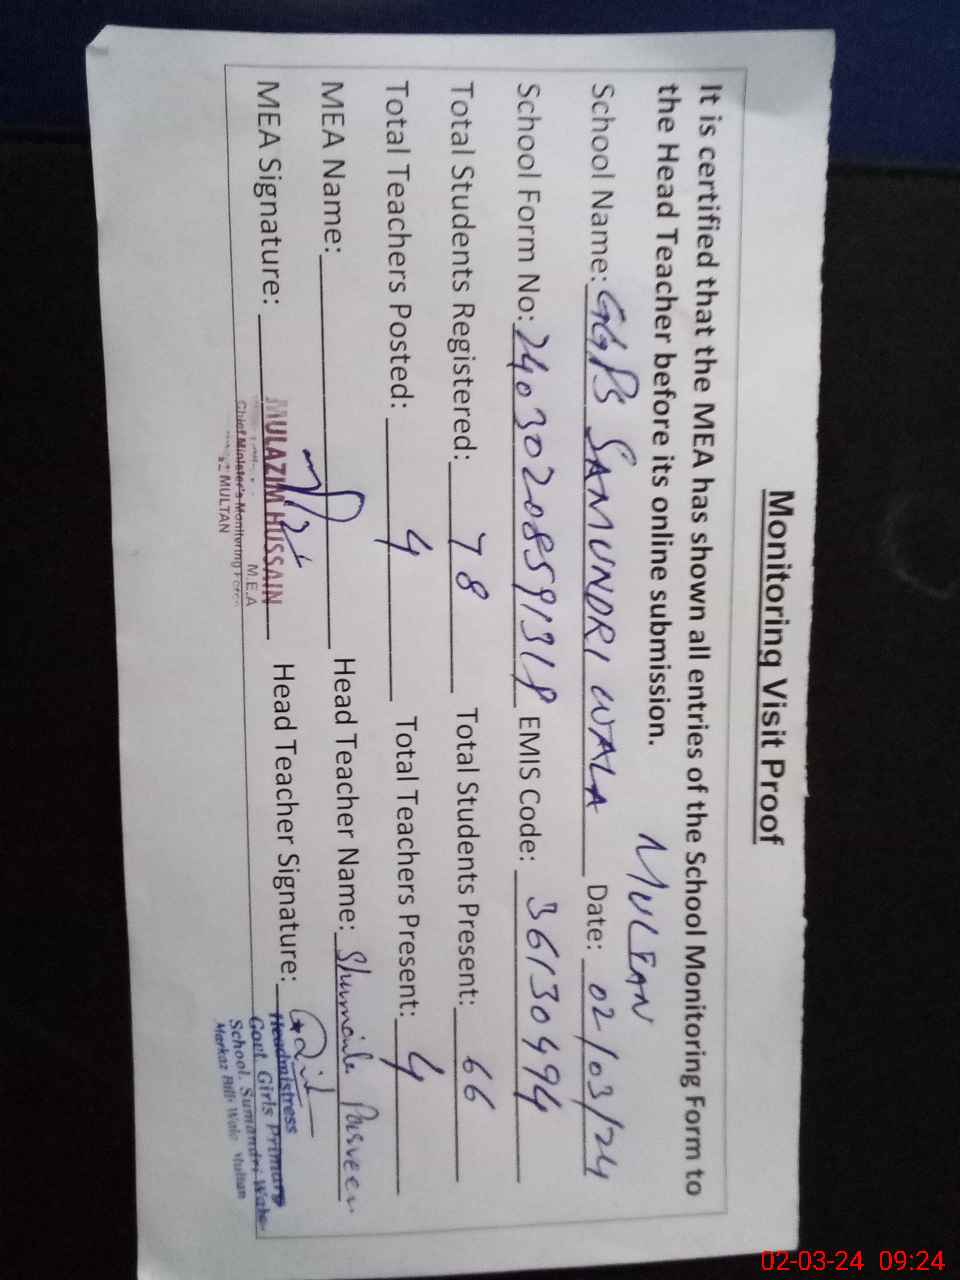 Monitoring Visit Proof
It is certified that the MEA has shown all entries of the School Monitoring Form to
the Head Teacher before its online submission.
MULTAN
School Name: GGPS SAMUNDRI WALA Date: 02/03/24
School Form No: EMIS Code: 36130494
Total Students Registered: 78 Total Students Present: 66
Total Teachers Posted: 4 Total Teachers Present: 4
MEA Name: Head Teacher Name: Parveen
MEA Signature: Head Teacher Signature:
MULAZIM HUSSAIN
M.E.A
Chief Minister's Monitoring Force
MULTAN
Headmistress
Govt. Girls Primary
School. Sumandri Wala
Markaz Billi Wala Multan
02-03-24 09:24